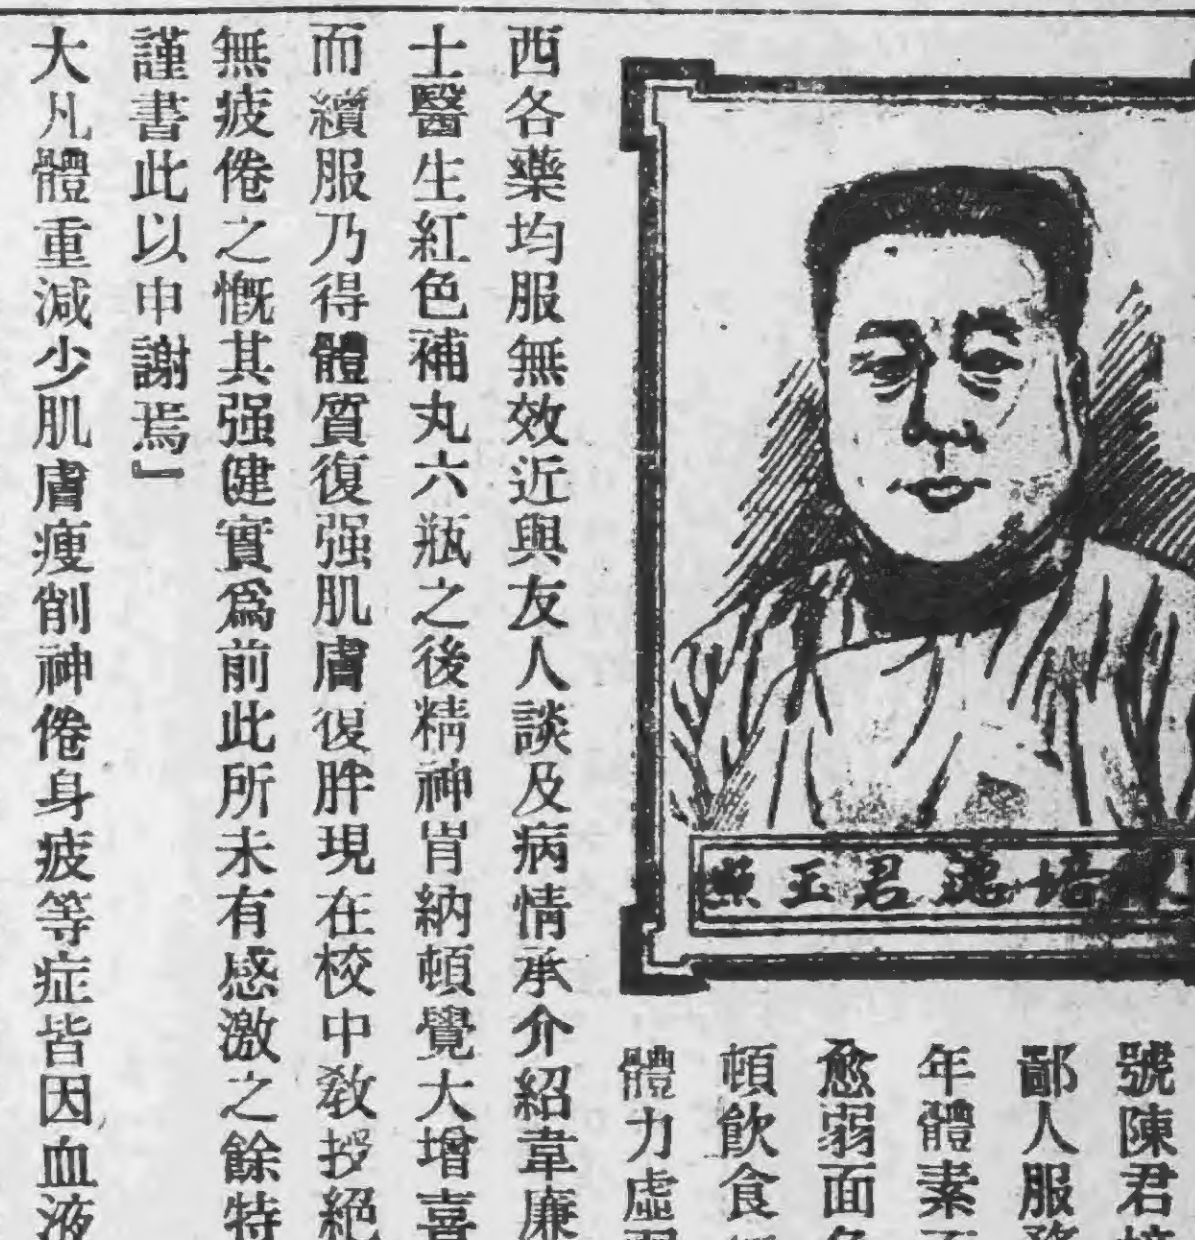 號陳君
鄙人服務
年體素
愈弱面
頓飲食
體力虛
西各藥均服無效近與友人談及病情承介紹韋廉
士醫生紅色補丸六瓶之後精神胃納頓覺大增喜
而續服乃得體質復强肌膚復胖現在校中敎授絕
無疲倦之慨其强健實爲前此所未有感激之餘特
謹書此以申謝焉』
大凡體重減少肌膚瘦削神倦身疲等症皆因血液
培 君玉